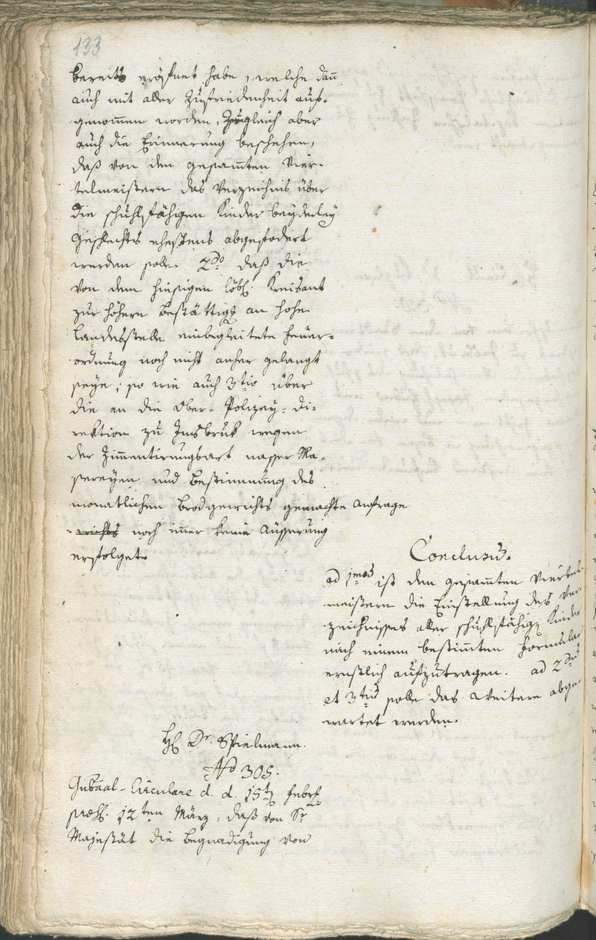 133
bereits eröfnet habe, welche dañ
auch mit aller Zufriedenheit auf-
genommen worden, Zugleich aber
auch die Erinnerung beschehen,
daß von den gesam̃ten Vier-
telmeistern das Verzeichnis über
die schuhlfähigen Kinder beyderley
Geschlechts ehestens abgefodert
werden solle. 2do daß die
von dem hiesigen löbl. Kreisamt
zur höhern Bestättigg an hohe
Landesstelle einbegleitete Feuer-
ordnung noch nicht anher gelangt
seye; so wie auch 3tio über
die an die Ober-Polizey-Di-
rektion zu Insbruk wegen
der Zimmentirungsart nasser Ma-
sereyen und Bestimmung des
monatlichen Brodgewichts gemachte Anfrage
noch im̃er keine Äusserung
erfolget.
Conclusis.
ad 1mum ist den gesam̃ten Viertel-
meistern die Einstellung des Ver-
zeichnisses aller schuhlfähigen Kinder
nach einem bestimmten Formular
ernstlich aufzutragen. ad 2dum
et 3tium solle das Weitere abge-
wartet werden.
H. Dr. Spielmann.
No 305.
Gubernal-Circulare d. d. 15ten Febr.
præs. 12ten März, daß von Sr
Majestät die Begnadigung von